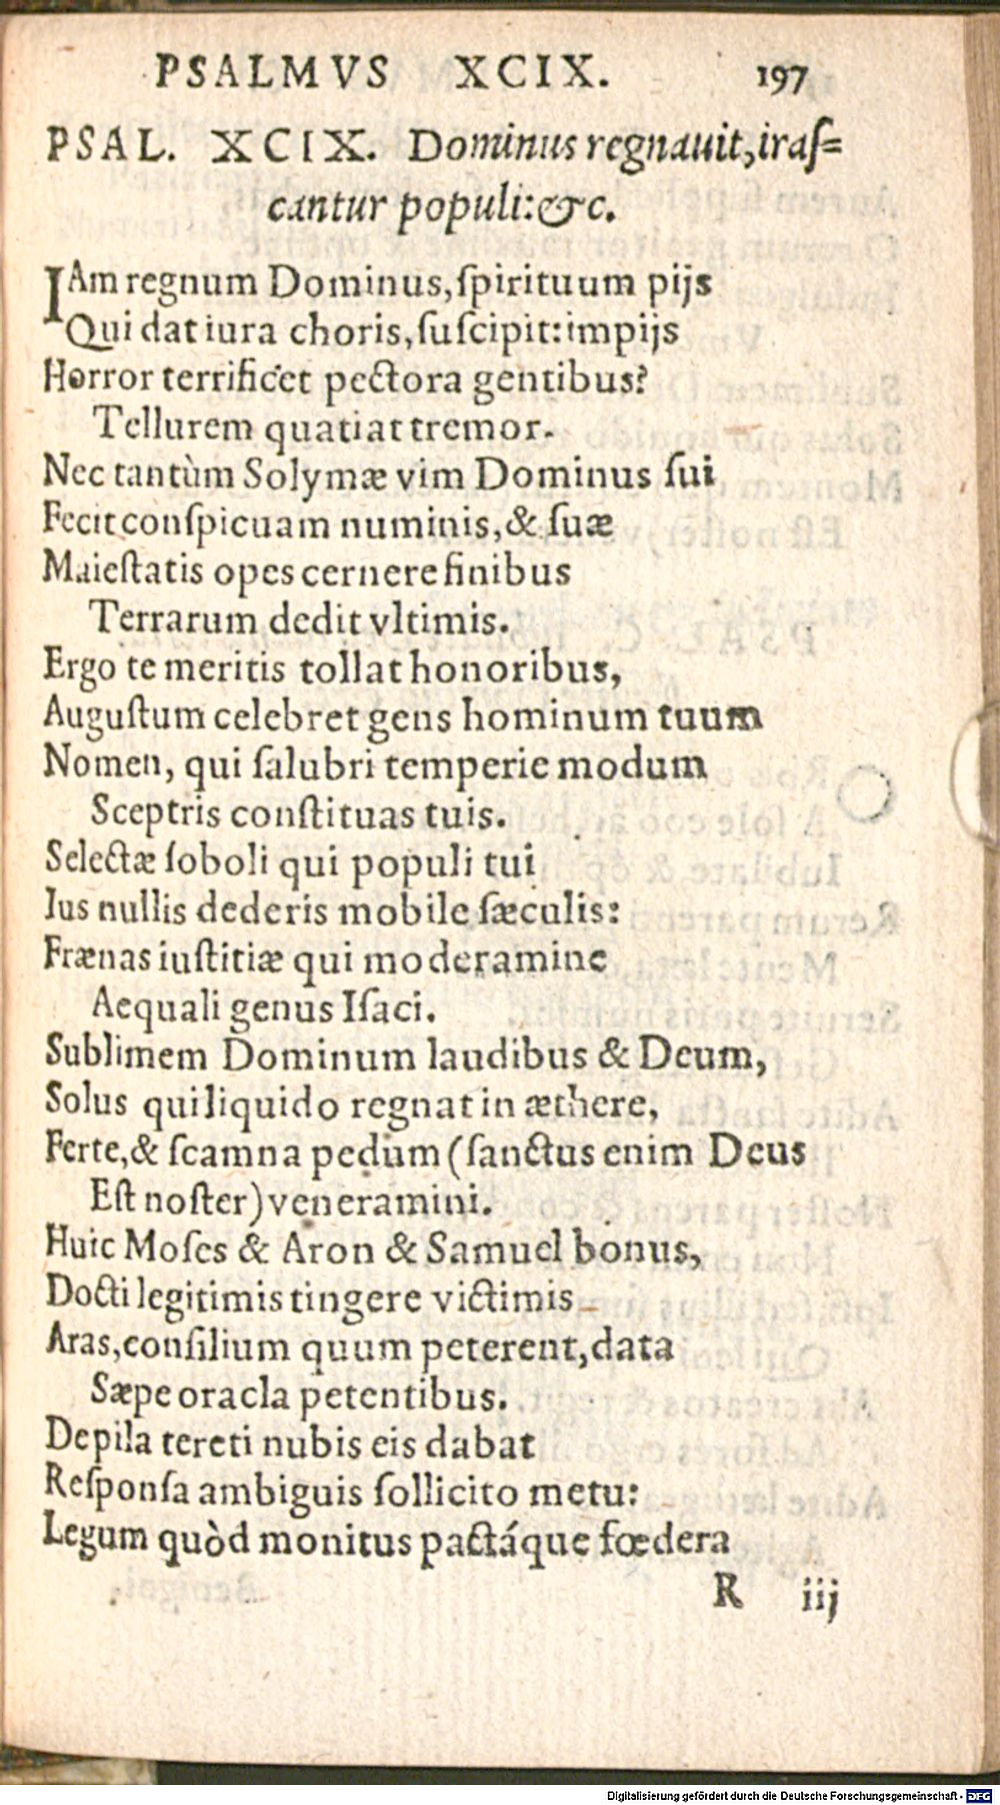 PSALMVS XCIX. 197
PSAL. XCIX. Dominus regnauit, iraſ=
cantur populi: &c.
IAm regnum Dominus, ſpirituum pijs
Qui dat iura choris, ſuſcipit: impijs
Horror terrificet pectora gentibus?
Tellurem quatiat tremor.
Nec tantùm Solymæ vim Dominus ſui
Fecit conſpicuam numinis, & ſuæ
Maieſtatis opes cernere finibus
Terrarum dedit vltimis.
Ergo te meritis tollat honoribus,
Auguſtum celebret gens hominum tuum
Nomen, qui ſalubri temperie modum
Sceptris conſtituas tuis.
Selectæ ſoboli qui populi tui
Ius nullis dederis mobile ſæculis:
Frænas iuſtitiæ qui moderamine
Aequali genus Iſaci.
Sublimem Dominum laudibus & Deum,
Solus qui liquido regnat in æthere,
Ferte, & ſcamna pedum (ſanctus enim Deus
Eſt noſter) veneramini.
Huic Moſes & Aron & Samuel bonus,
Docti legitimis tingere victimis
Aras, conſilium quum peterent, data
Sæpe oracla petentibus.
De pila tereti nubis eis dabat
Reſponſa ambiguis ſollicito metu:
Legum quòd monitus pactáque fœdera
R iij
Digitalisierung gefördert durch die Deutsche Forschungsgemeinschaft - DFG